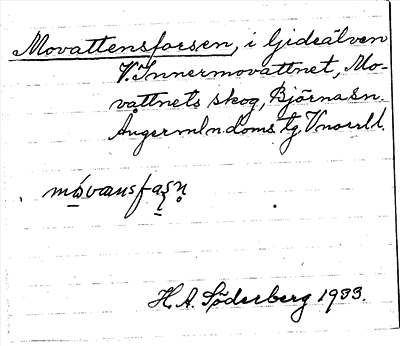 Movattensforsen, i Gideälven
V. Innermovattnet, Mo-
vattnets skog, Björna sn.
Ångermln doms tg. Vnorrl l.
H. A. Söderberg 1933.